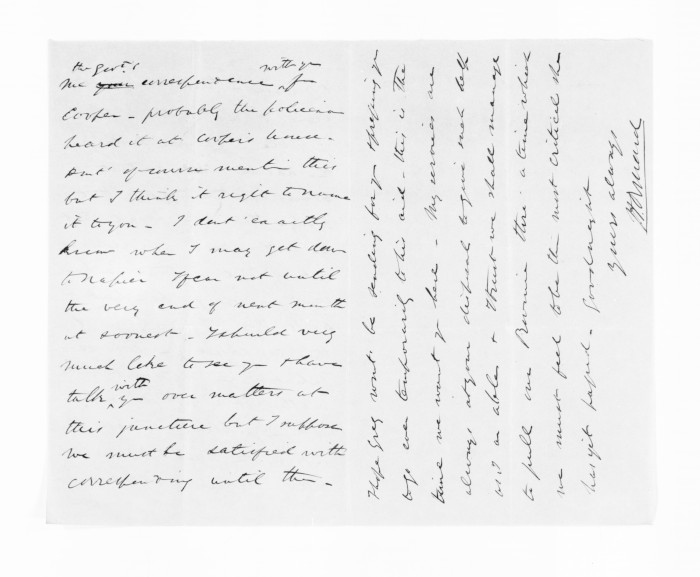 the Govt.s with you
me your correspondence, of
Cooper - probably the policeman
heard it at Cooper's house.
Don't of course mention this
but I think it right to name
it to you - I don't exactly
know when I may get down
to Napier I fear not until
the very end of next month
at soonest - I should very
much like to see you & have
talk with you over matters at
this juncture but I suppose
we must be satisfied with
corresponding until then -
I hope Grey won't be sending for you & praying you
to go over temporarily to his aid - this is the
time we want you here - My services are
always at your disposal to give such help
as I am able & I trust we shall manage
to pull our Province thro' a time which
we must feel to be the most critical she
has yet passed - Good night
Yours always